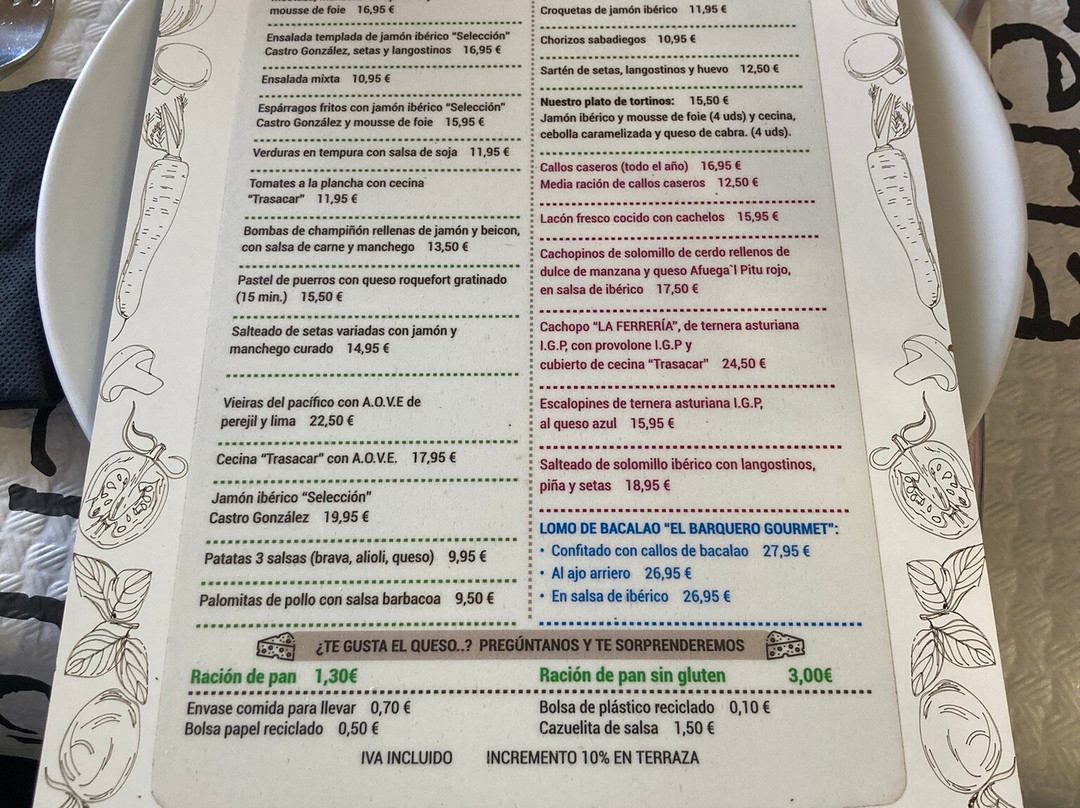 mousse de foie 16,95 €
Ensalada templada de jamón ibérico “Selección”
Castro González, setas y langostinos 16,95 €
Ensalada mixta 10,95 €
Espárragos fritos con jamón ibérico “Selección”
Castro González y mousse de foie 15,95 €
Verduras en tempura con salsa de soja 11,95 €
Tomates a la plancha con cecina
“Trasacar” 11,95 €
Bombas de champiñón rellenas de jamón y beicon,
con salsa de carne y manchego 13,50 €
Pastel de puerros con queso roquefort gratinado
(15 min.) 15,50 €
Salteado de setas variadas con jamón y
manchego curado 14,95 €
Vieiras del pacífico con A.O.V.E de
perejil y lima 22,50 €
Cecina “Trasacar” con A.O.V.E. 17,95 €
Jamón ibérico “Selección”
Castro González 19,95 €
Patatas 3 salsas (brava, alioli, queso) 9,95 €
Palomitas de pollo con salsa barbacoa 9,50 €
Croquetas de jamón ibérico 11,95 €
Chorizos sabadiegos 10,95 €
Sartén de setas, langostinos y huevo 12,50 €
Nuestro plato de tortinos: 15,50 €
Jamón ibérico y mousse de foie (4 uds) y cecina,
cebolla caramelizada y queso de cabra. (4 uds).
Callos caseros (todo el año) 16,95 €
Media ración de callos caseros 12,50 €
Lacón fresco cocido con cachelos 15,95 €
Cachopinos de solomillo de cerdo rellenos de
dulce de manzana y queso Afuega`l Pitu rojo,
en salsa de ibérico 17,50 €
Cachopo “LA FERRERÍA”, de ternera asturiana
I.G.P, con provolone I.G.P y
cubierto de cecina “Trasacar” 24,50 €
Escalopines de ternera asturiana I.G.P,
al queso azul 15,95 €
Salteado de solomillo ibérico con langostinos,
piña y setas 18,95 €
LOMO DE BACALAO “EL BARQUERO GOURMET”:
• Confitado con callos de bacalao 27,95 €
• Al ajo arriero 26,95 €
• En salsa de ibérico 26,95 €
¿TE GUSTA EL QUESO..? PREGÚNTANOS Y TE SORPRENDEREMOS
Ración de pan 1,30€
Ración de pan sin gluten 3,00€
Envase comida para llevar 0,70 €
Bolsa de plástico reciclado 0,10 €
Bolsa papel reciclado 0,50 €
Cazuelita de salsa 1,50 €
IVA INCLUIDO INCREMENTO 10% EN TERRAZA